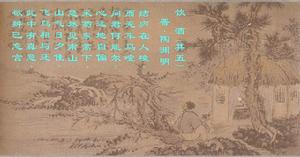 饮酒其五
晋 陶渊明
结庐在人境
而无车马喧
问君何能尔
心远地自偏
采菊东篱下
悠然见南山
山气日夕佳
飞鸟相与还
此中有真意
欲辨已忘言